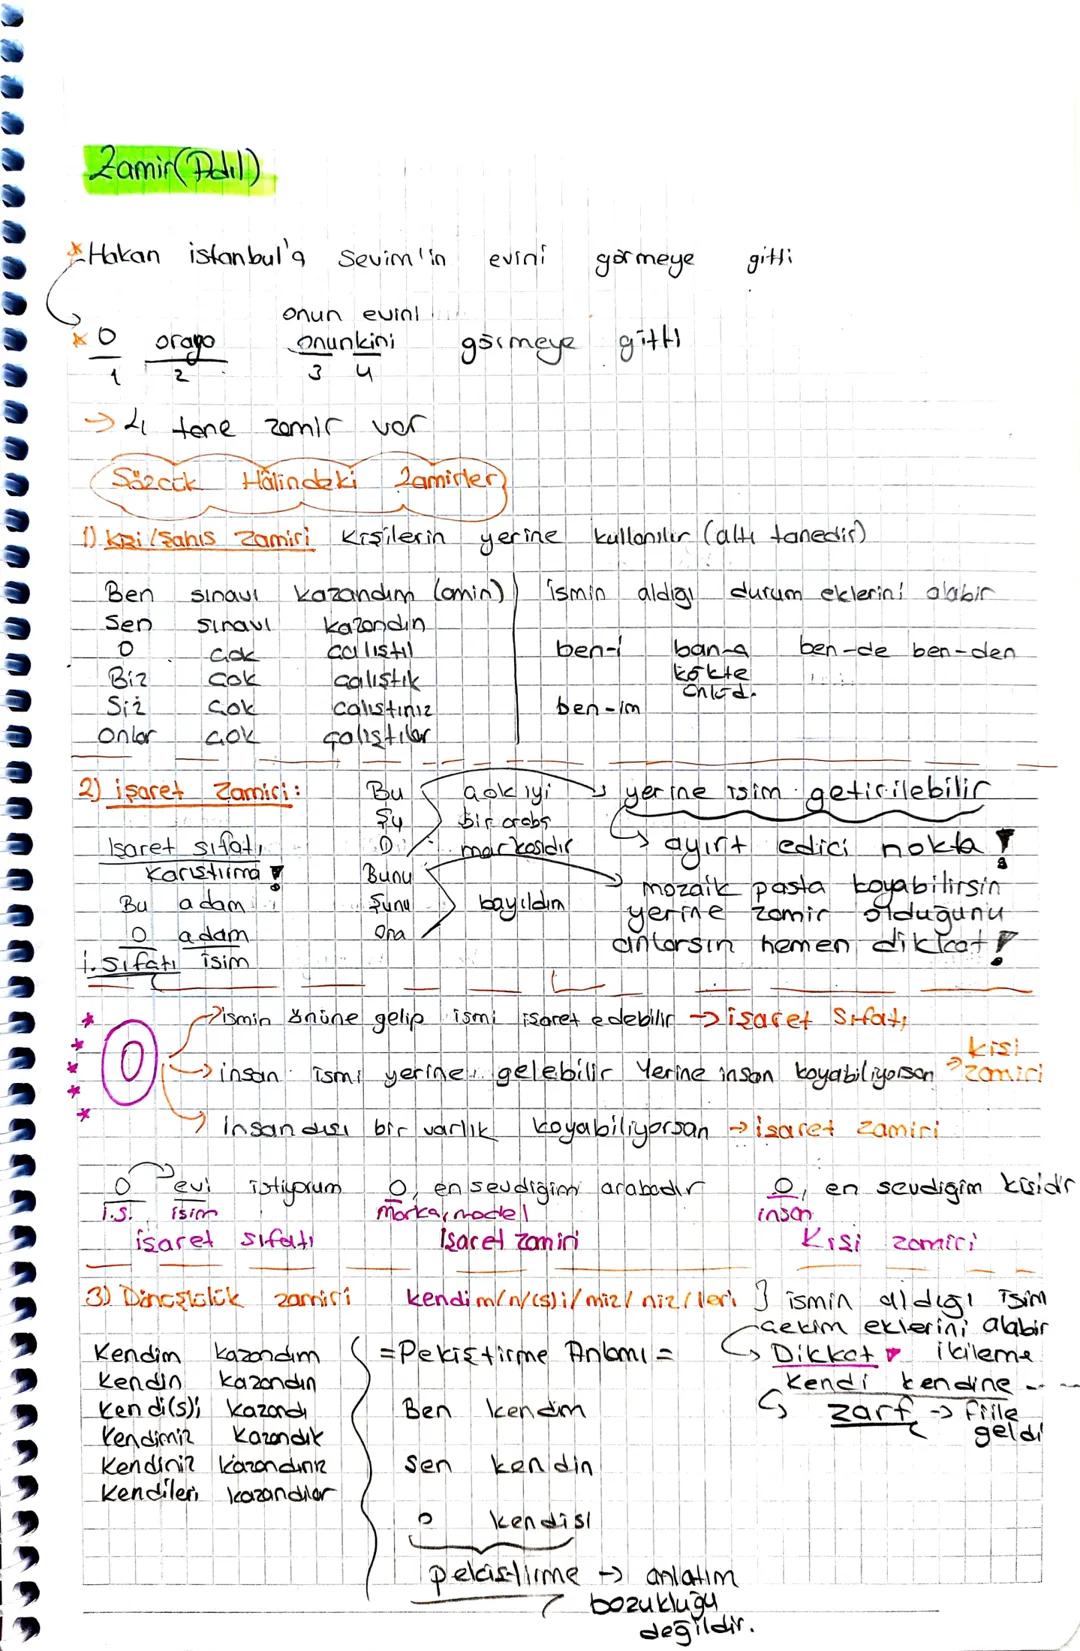 Zamir(Adıl)
*Hakan istanbul'a Sevim'in evini görmeye gitti
onun evini
*O oraya onunkini görmeye gitti
1 2 3 4
→ 4 tane zamir var
Sözcük Hâlindeki Zamirler
1) Kişi/Şahıs Zamiri Kişilerin yerine kullanılır (altı tanedir)
Ben sınavı kazandım (amin)
Sen sınavı kazandın
O çok çalıştıl
Biz çok çalıştık
Siz çok çalıştınız
Onlar çok çalıştılar
ismin aldığı durum eklerini alabir
ben-i ban-a ben-de ben-den
kökte
ünlüd.
ben-im
2) işaret Zamiri:
İşaret sıfatı
Karıştırma!
Bu adam
O adam
i. sıfatı isim
Bu
Şu
O
çok iyi
bir araba
markasıdır
→ yerine isim getirilebilir
→ ayırt edici nokta!
Bunu
Şunu
Ona
bayıldım
→ mozaik pasta koyabilirsin
yerine zamir olduğunu
anlarsın hemen dikkat!
O
→ismin önüne gelip ismi işaret edebilir → işaret Sıfatı
→insan ismi yerine gelebilir Yerine insan koyabiliyorsan → kişi zamiri
→ insan dışı bir varlık koyabiliyorsan → işaret zamiri
O evi istiyorum
i.s. isim
işaret sıfatı
O, en sevdiğim arabadır
marka, model
İşaret zamiri
O, en sevdiğim kişidir
insan
Kişi zamiri
3) Dönüşlülük zamiri kendim/n/(s)i/miz/niz/leri } ismin aldığı isim
çekim eklerini alabir
→ Dikkat ikileme
kendi kendine - -
→ zarf → fiile
geldi
Kendim kazandım
Kendin kazandın
Kendi(s)i kazandı
Kendimiz kazandık
Kendiniz kazandınız
Kendileri kazandılar
=Pekiştirme Anlamı=
Ben kendim
Sen kendin
O kendisi
pekiştirme → anlatım
bozukluğu
değildir.